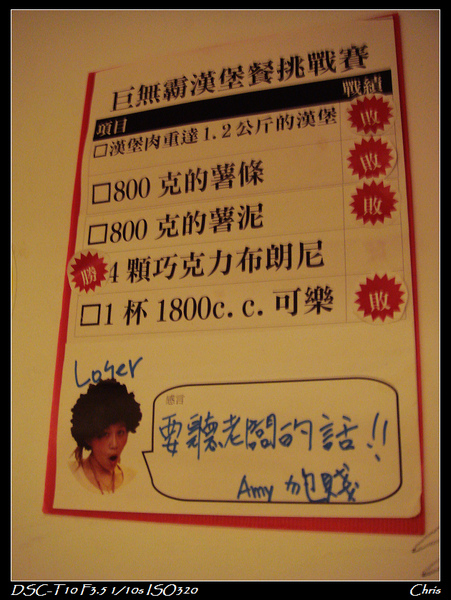 巨無霸漢堡餐挑戰賽
項目 戰績
□漢堡肉重達1.2公斤的漢堡 敗
□800克的薯條 敗
□800克的薯泥 敗
勝 4顆巧克力布朗尼
□1杯1800c.c.可樂 敗
Loser
感言
要聽老闆的話!!
Amy
DSC-T10 F3.5 1/10s ISO320
Chris